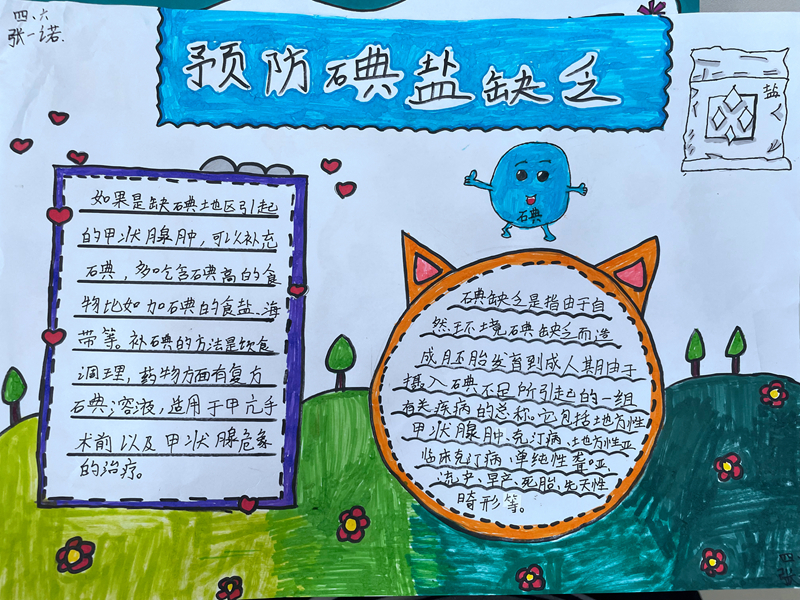 四、六
张一诺.
预防碘盐缺乏
盐
碘
如果是缺碘地区引起
的甲状腺肿,可以补充
碘,多吃含碘高的食
物比如加碘的食盐、海
带等。补碘的方法是饮食
调理,药物方面有复方
碘溶液,适用于甲亢手
术前以及甲状腺危象
的治疗。
碘缺乏是指由于自
然环境碘缺乏而造
成胚胎发育到成人期由于
摄入碘不足所引起的一组
有关疾病的总称。它包括地方性
甲状腺肿、克汀病、地方性亚
临床克汀病、单纯性聋哑、
流产、早产、死胎、先天性
畸形等。
四
张